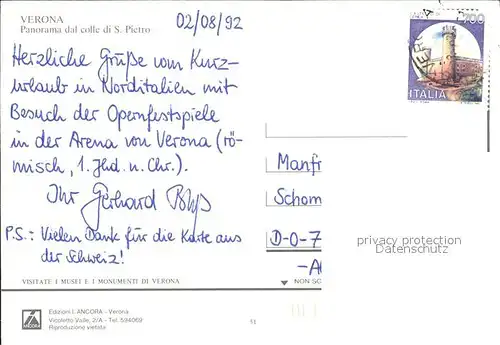 VERONA
Panorama dal colle di S. Pietro
02/08/92
700
ITALIA
Herzliche Grüße vom Kurz-
urlaub in Norditalien mit
Besuch der Opernfestspiele
in der Arena von Verona (rö-
misch, 1. Jhd. n. Chr.).
Ihr Gerhard
P.S.: Vielen Dank für die Karte aus
der Schweiz!
Manfr
Schom
D-O-7
privacy protection
oldthing.com
VISITATE I MUSEI E I MONUMENTI DI VERONA
NON SC
Edizioni L'ANCORA - Verona
Vicoletto Valle, 2/A - Tel. 594069
Riproduzione vietata